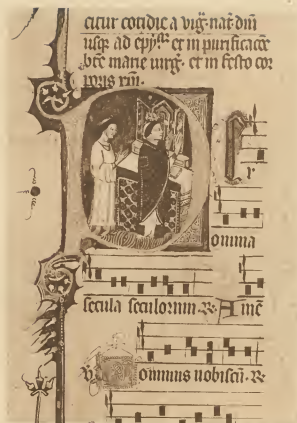 citur cotidie a vig. nat. dñi
usq; ad epyp̄ et in purificacōe
bte marie virg. et in festo cor
poris xpi.
Per
omnia
secula seculorum. ℟. Amē
Dominus nobiscū. ℟.